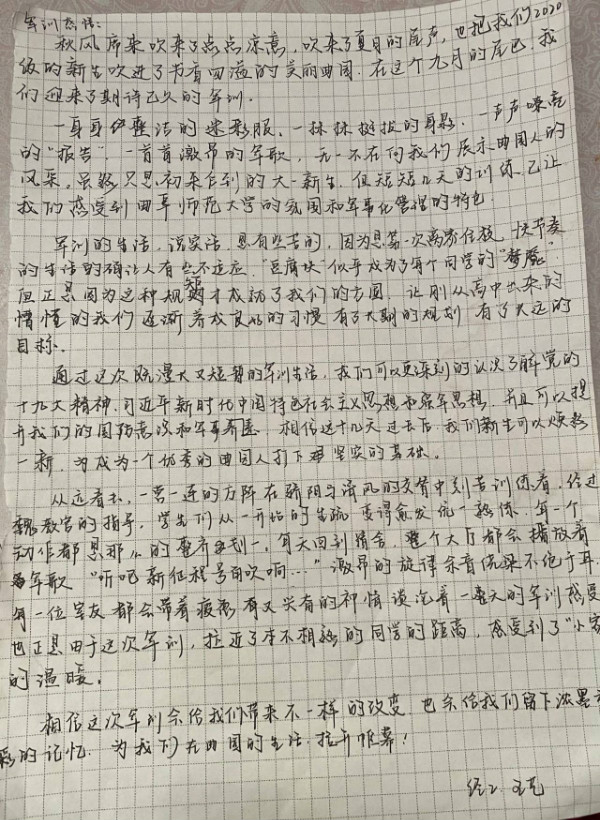 军训感悟:
秋风席来吹来了点点凉意,吹来了夏日的尾声,也把我们2020
级的新生吹进了书香四溢的美丽曲园.在这个九月的尾巴,我
们迎来了期待已久的军训.
一身身整洁的迷彩服.一株株挺拔的身影.一声声嘹亮
的"报告".一首首激昂的军歌,无一不在向我们展示曲园人的
风采,虽然只是初来乍到的大一新生,但短短几天的训练,已让
我们感受到曲阜师范大学的氛围和军事化管理的特色.
军训的生活,说实话,是有些苦的,因为是第一次离家住校,快节奏
的生活的确让人有些不适应,"豆腐块"似乎成为了每个同学的"梦魇".
但正是因为这种规矩才成就了我们的方圆.让刚从高中出来的
懵懂的我们逐渐养成良好的习惯有了长期的规划有了大远的
目标.
通过这次既漫长又短暂的军训生活,我们可以更深刻的认识了解党的
十九大精神.习近平新时代中国特色社会主义思想和强军思想.并且可以提
升我们的国防意识和军事素质.相信这十几天过去后,我们新生可以焕然
一新,为成为一个优秀的曲园人打下坚实的基础。
从远看去,一营一连的方阵在骄阳与清风的交替中刻苦训练着,经过
教官的指导,学生们从一开始的生疏变得愈发统一熟练.每一个
动作都是那么的整齐划一,每天回到宿舍,整个大厅都会播放着
军歌"听吧新征程号角吹响..."激昂的旋律余音绕梁不绝于耳.
每一位室友都会带着疲惫有又兴奋的神情谈论着一整天的军训感受
也正是由于这次军训,拉近了本不相熟的同学的距离,感受到了"小家
的温暖。
相信这次军训会给我们带来不一样的改变.也会给我们留下浓墨
彩的记忆.为我们在曲园的生活.拉开帷幕!
经2